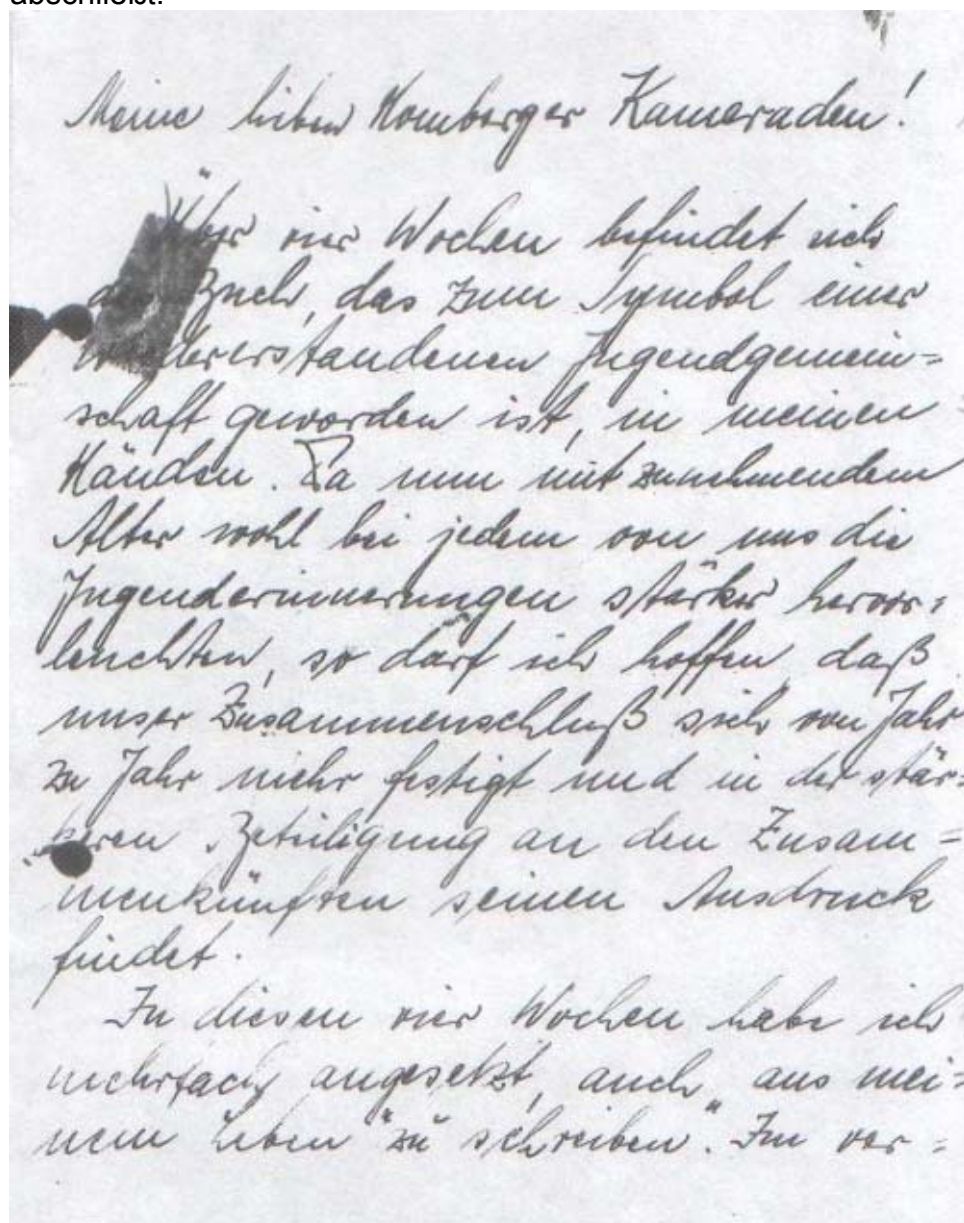 abschließt.
Meine lieben Homberger Kameraden!
Über vier Wochen befindet sich
das Buch, das zum Symbol einer
wiedererstandenen Jugendgemein=
schaft geworden ist, in meinen
Händen. Da nun mit zunehmendem
Alter wohl bei jedem von uns die
Jugenderinnerungen stärker hervor=
leuchten, so darf ich hoffen, daß
unser Zusammenschluß sich von Jahr
zu Jahr mehr festigt und in der stär=
keren Beteiligung an den Zusam=
menkünften seinen Ausdruck
findet.
In diesen vier Wochen habe ich
mehrfach angesetzt, auch „aus mei=
nem Leben" zu schreiben". Im ver=